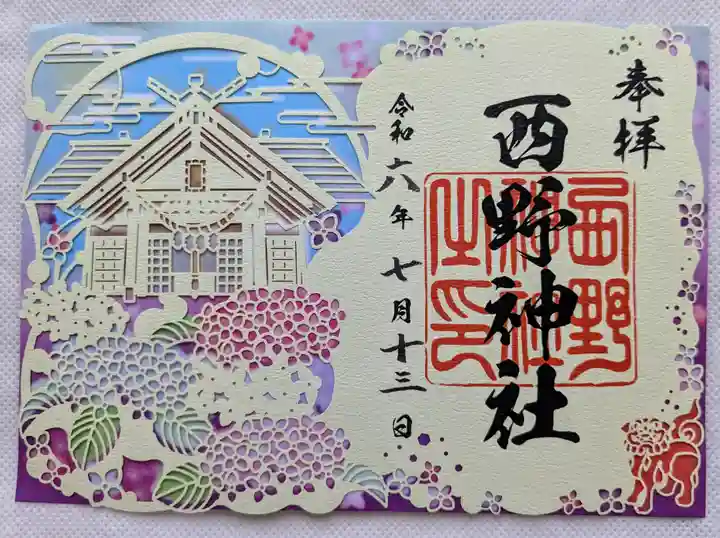 奉拝
西野神社
西野
神社
之印
令和六年七月十三日